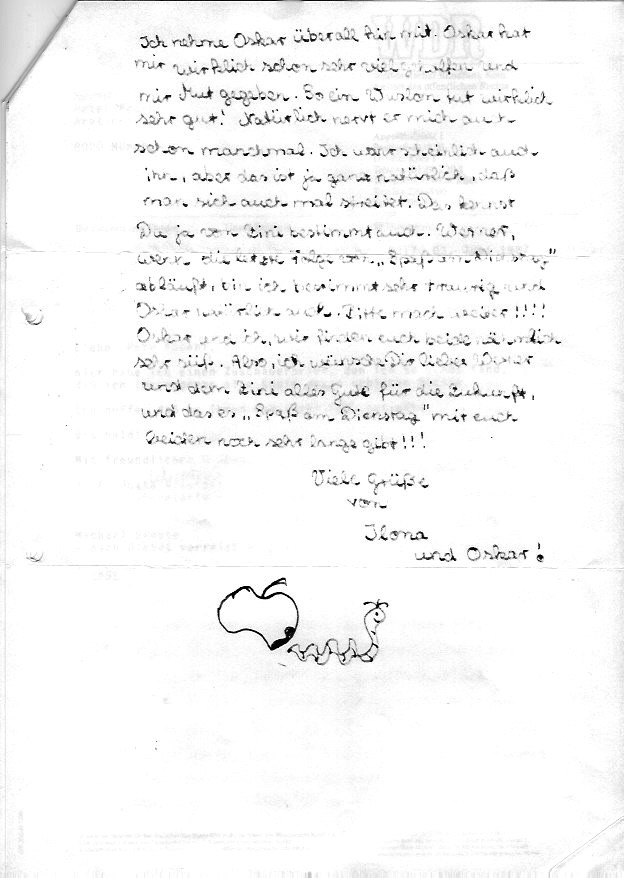 Ich nehme Oskar überall hin mit. Oskar hat
mir wirklich schon sehr viel geholfen und
mir Mut gegeben. So ein Wuslon tut wirklich
sehr gut! Natürlich nervt er mich auch
schon manchmal. Ich wahrscheinlich auch
ihn, aber das ist ja ganz natürlich, daß
man sich auch mal streitet. Das kennst
Du ja von Zini bestimmt auch. Werner,
wenn die letzte Folge von „Spaß am Dienstag"
abläuft, bin ich bestimmt sehr traurig und
Oskar natürlich auch. Bitte mach weiter!!!!
Oskar und ich, wir finden euch beide nähmlich
sehr süß. Also, ich wünsche Dir lieber Werner
und dem Zini alles Gute für die Zukunft,
und das es „Spaß am Dienstag" mit euch
beiden noch sehr lange gibt!!!
Viele Grüße
von
Ilona
und Oskar!
WDR